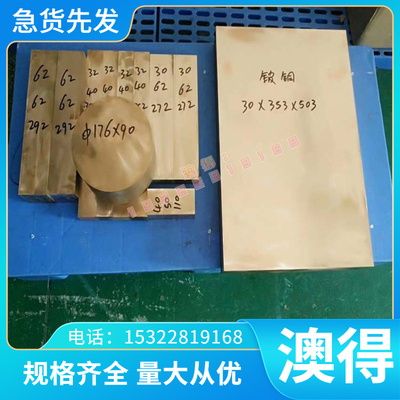 急货先发
62 62 32 32 32 32 30 30
62 62 40 40 40 40 62 62
292 292 272 272
Φ176X90
40
50
110
铍铜
30X353X503
电话：15322819168
规格齐全 量大从优
澳得